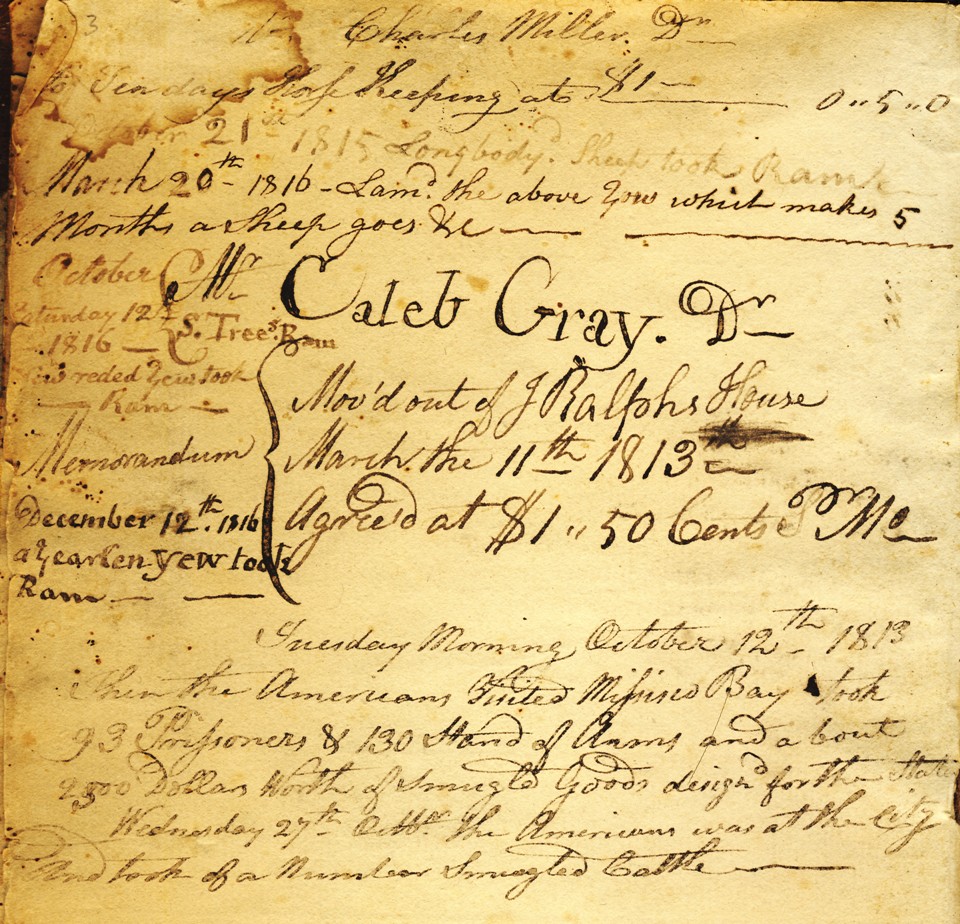 3
Mr Charles Miller. Dr
To Ten days Horse Keeping at $1 — 0 " 5 " 0
October 21st 1815 Longbody'd Sheep took Ram
March 20th 1816 - Lam'd the above Yow which makes 5
Months a sheep goes &c
Mr Caleb Gray. Dr
October
Saturday 12
1816 —
S. Tree's Ram
reded Yew took
Ram —
Memorandum
December 12th. 1816
a Yearlen Yew took
Ram —
Mov'd out of J Ralphs House
March the 11th 1813
Agree'd at $1 " 50 Cents Pr Mo
Tuesday Morning October 12th 1813
Then the Americans Visited Missisco Bay took
93 Prissoners & 130 Stand of Arms and a bout
2500 Dollars Worth of Smugled Goods desig'd for the States
Wednesday 27th Octbr. the Americans was at the City
And took of a Number Smugled Cattle —